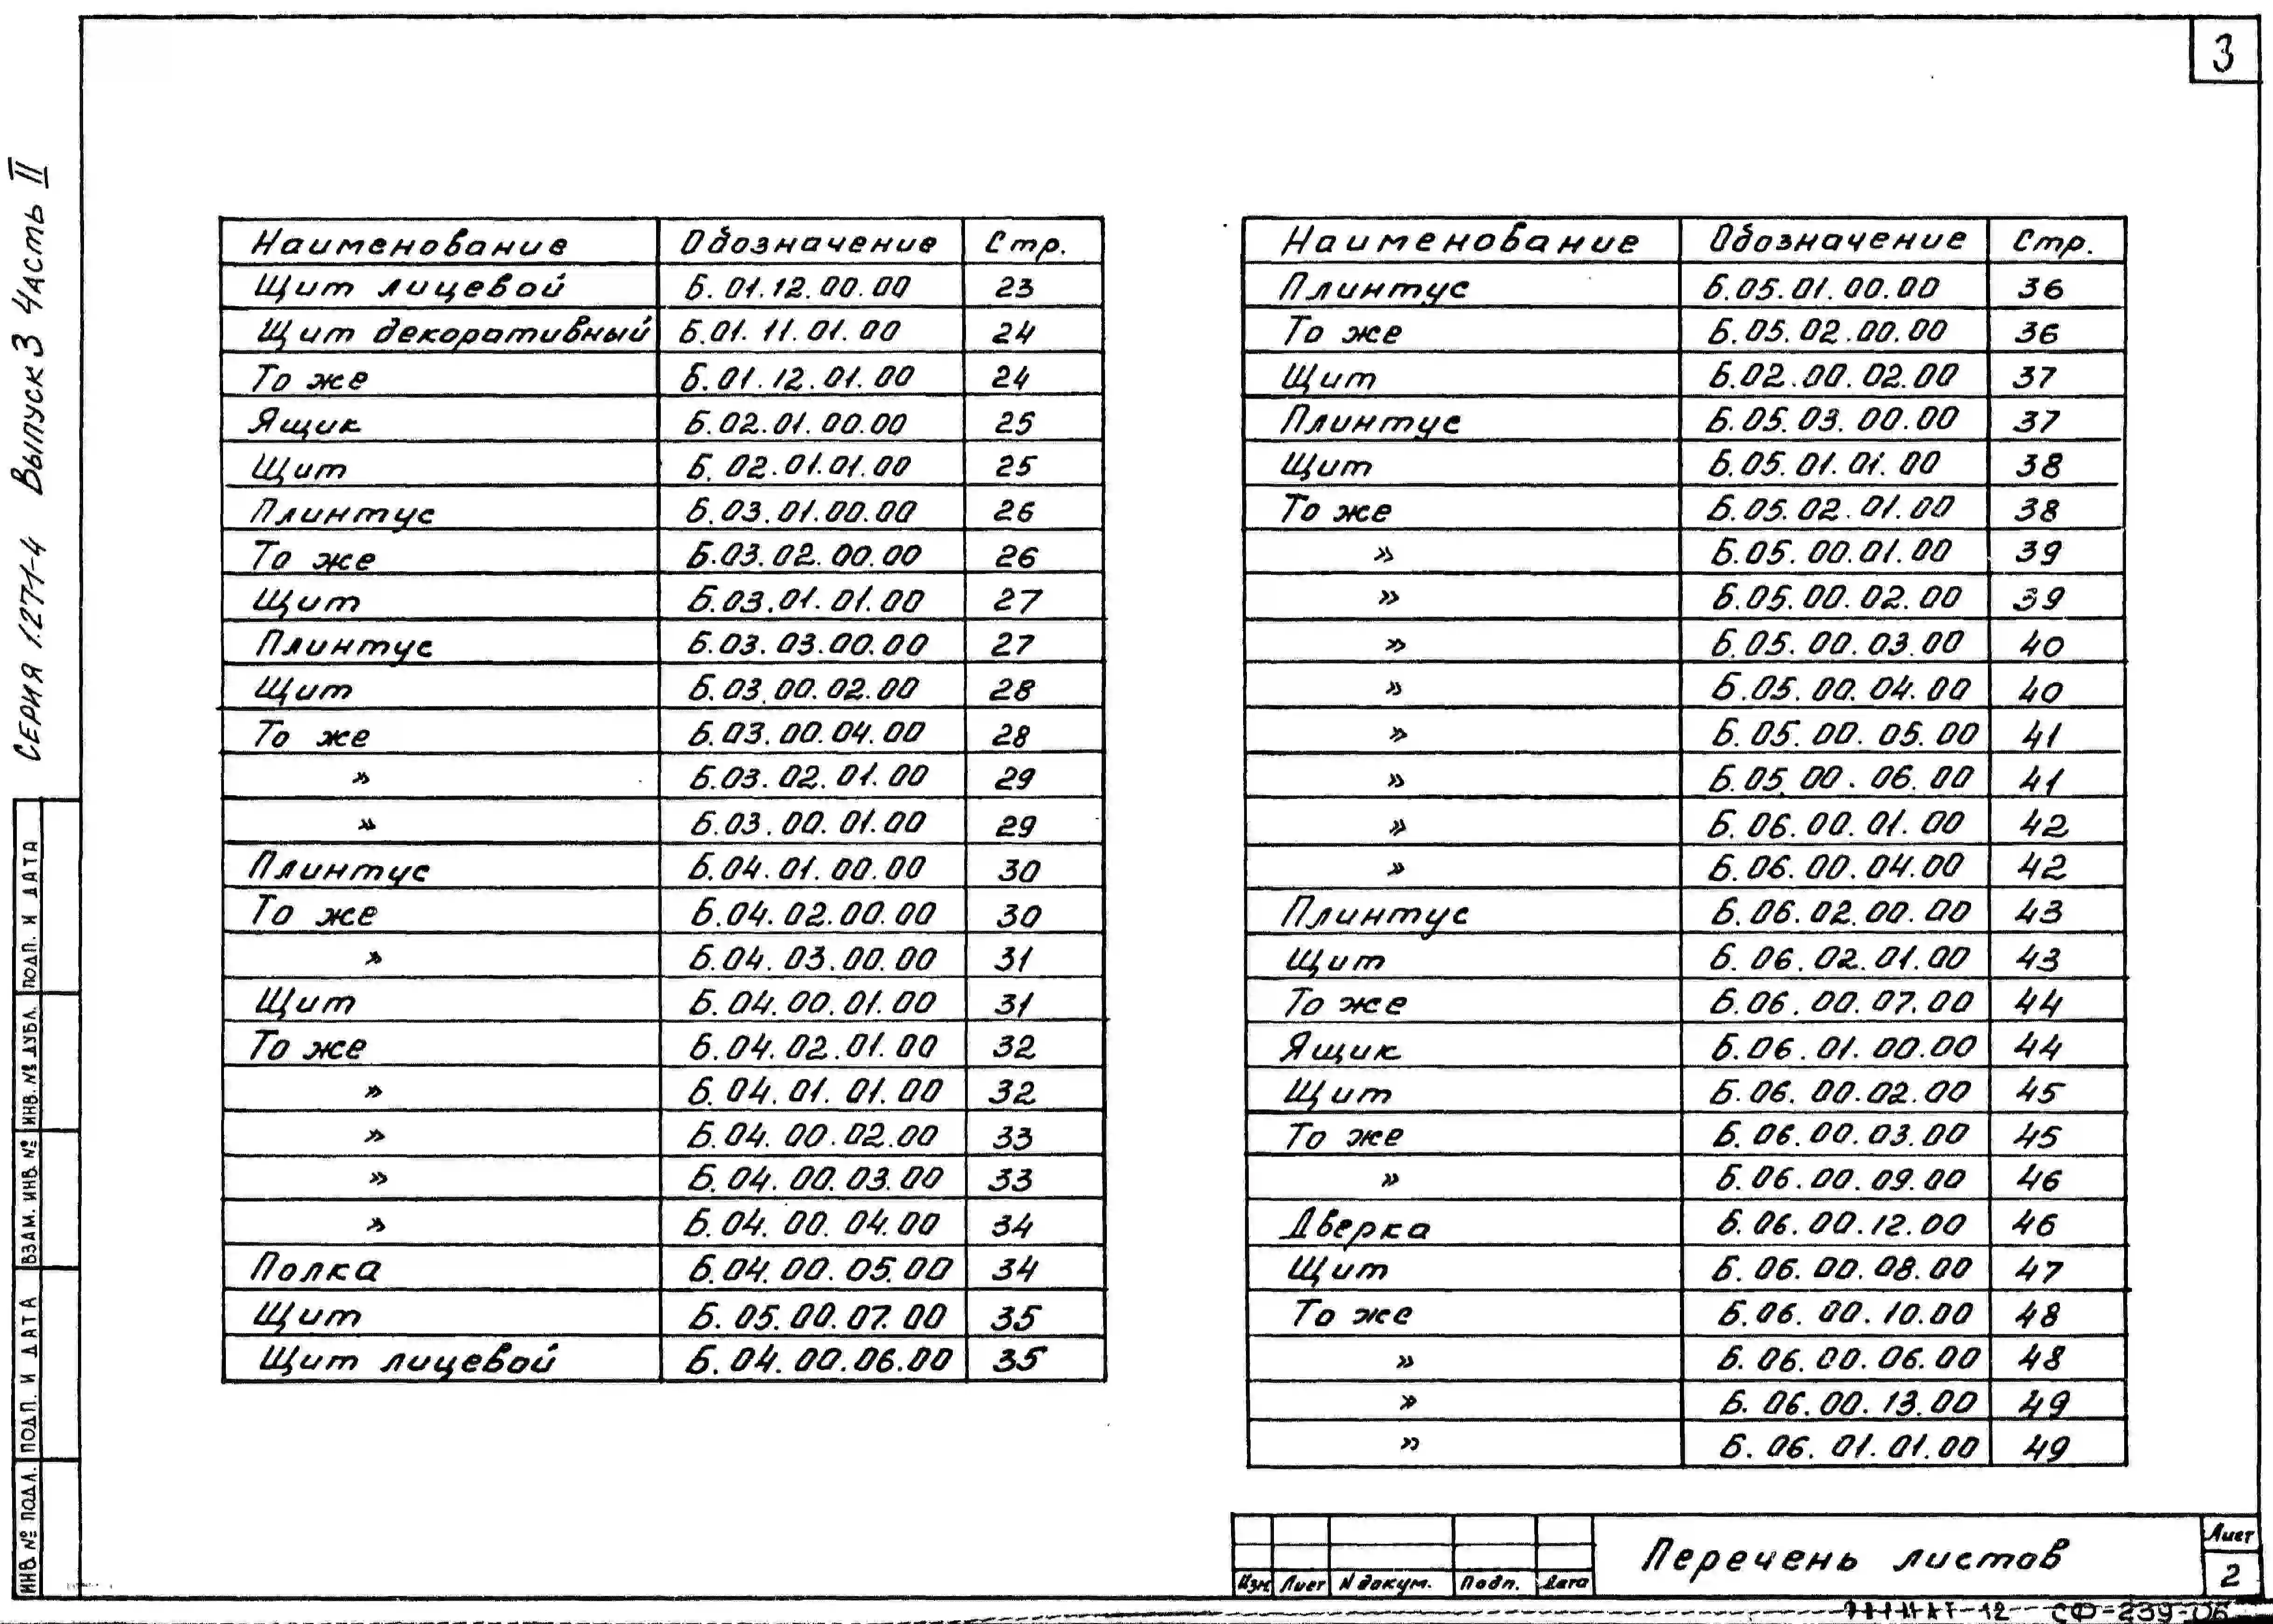 3
Серия 1.271-4 Выпуск 3 Часть II
Наименование Обозначение Стр.
Щит лицевой Б.01.12.00.00 23
Щит декоративный Б.01.11.01.00 24
То же Б.01.12.01.00 24
Ящик Б.02.01.00.00 25
Щит Б.02.01.01.00 25
Плинтус Б.03.01.00.00 26
То же Б.03.02.00.00 26
Щит Б.03.01.01.00 27
Плинтус Б.03.03.00.00 27
Щит Б.03.00.02.00 28
То же Б.03.00.04.00 28
» Б.03.02.01.00 29
» Б.03.00.01.00 29
Плинтус Б.04.01.00.00 30
То же Б.04.02.00.00 30
» Б.04.03.00.00 31
Щит Б.04.00.01.00 31
То же Б.04.02.01.00 32
» Б.04.01.01.00 32
» Б.04.00.02.00 33
» Б.04.00.03.00 33
» Б.04.00.04.00 34
Полка Б.04.00.05.00 34
Щит Б.05.00.07.00 35
Щит лицевой Б.04.00.06.00 35
Наименование Обозначение Стр.
Плинтус Б.05.01.00.00 36
То же Б.05.02.00.00 36
Щит Б.02.00.02.00 37
Плинтус Б.05.03.00.00 37
Щит Б.05.01.01.00 38
То же Б.05.02.01.00 38
» Б.05.00.01.00 39
» Б.05.00.02.00 39
» Б.05.00.03.00 40
» Б.05.00.04.00 40
» Б.05.00.05.00 41
» Б.05.00.06.00 41
» Б.06.00.01.00 42
» Б.06.00.04.00 42
Плинтус Б.06.02.00.00 43
Щит Б.06.02.01.00 43
То же Б.06.00.07.00 44
Ящик Б.06.01.00.00 44
Щит Б.06.00.02.00 45
То же Б.06.00.03.00 45
» Б.06.00.09.00 46
Дверка Б.06.00.12.00 46
Щит Б.06.00.08.00 47
То же Б.06.00.10.00 48
» Б.06.00.06.00 48
» Б.06.00.13.00 49
» Б.06.01.01.00 49
ИНВ. № ПОДЛ. ПОДП. И ДАТА ВЗАМ. ИНВ. № ИНВ. № ДУБЛ. ПОДП. И ДАТА
Изм. Лист N докум. Подп. Дата
Перечень листов
Лист
2